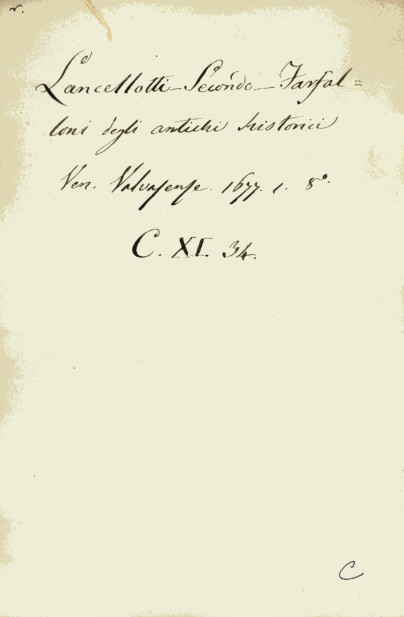 r.
Lancellotti – Secondo – Farfal=
loni degli antichi historici
Ven. Valvasense. 1677. 1. 8°.
C. XI. 34.
C